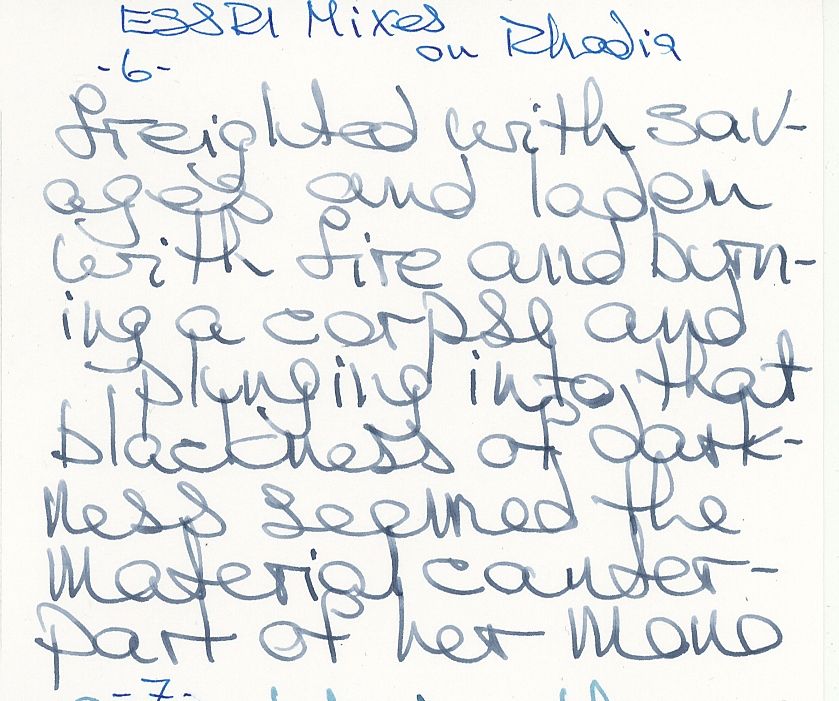 ESSRI Mixes
on Rhodia
-6-
freighted with sav-
ages and laden
with fire and burn-
ing a corpse and
plunging into that
blackness of dark-
ness seemed the
material canter-
part of her mono
-7-